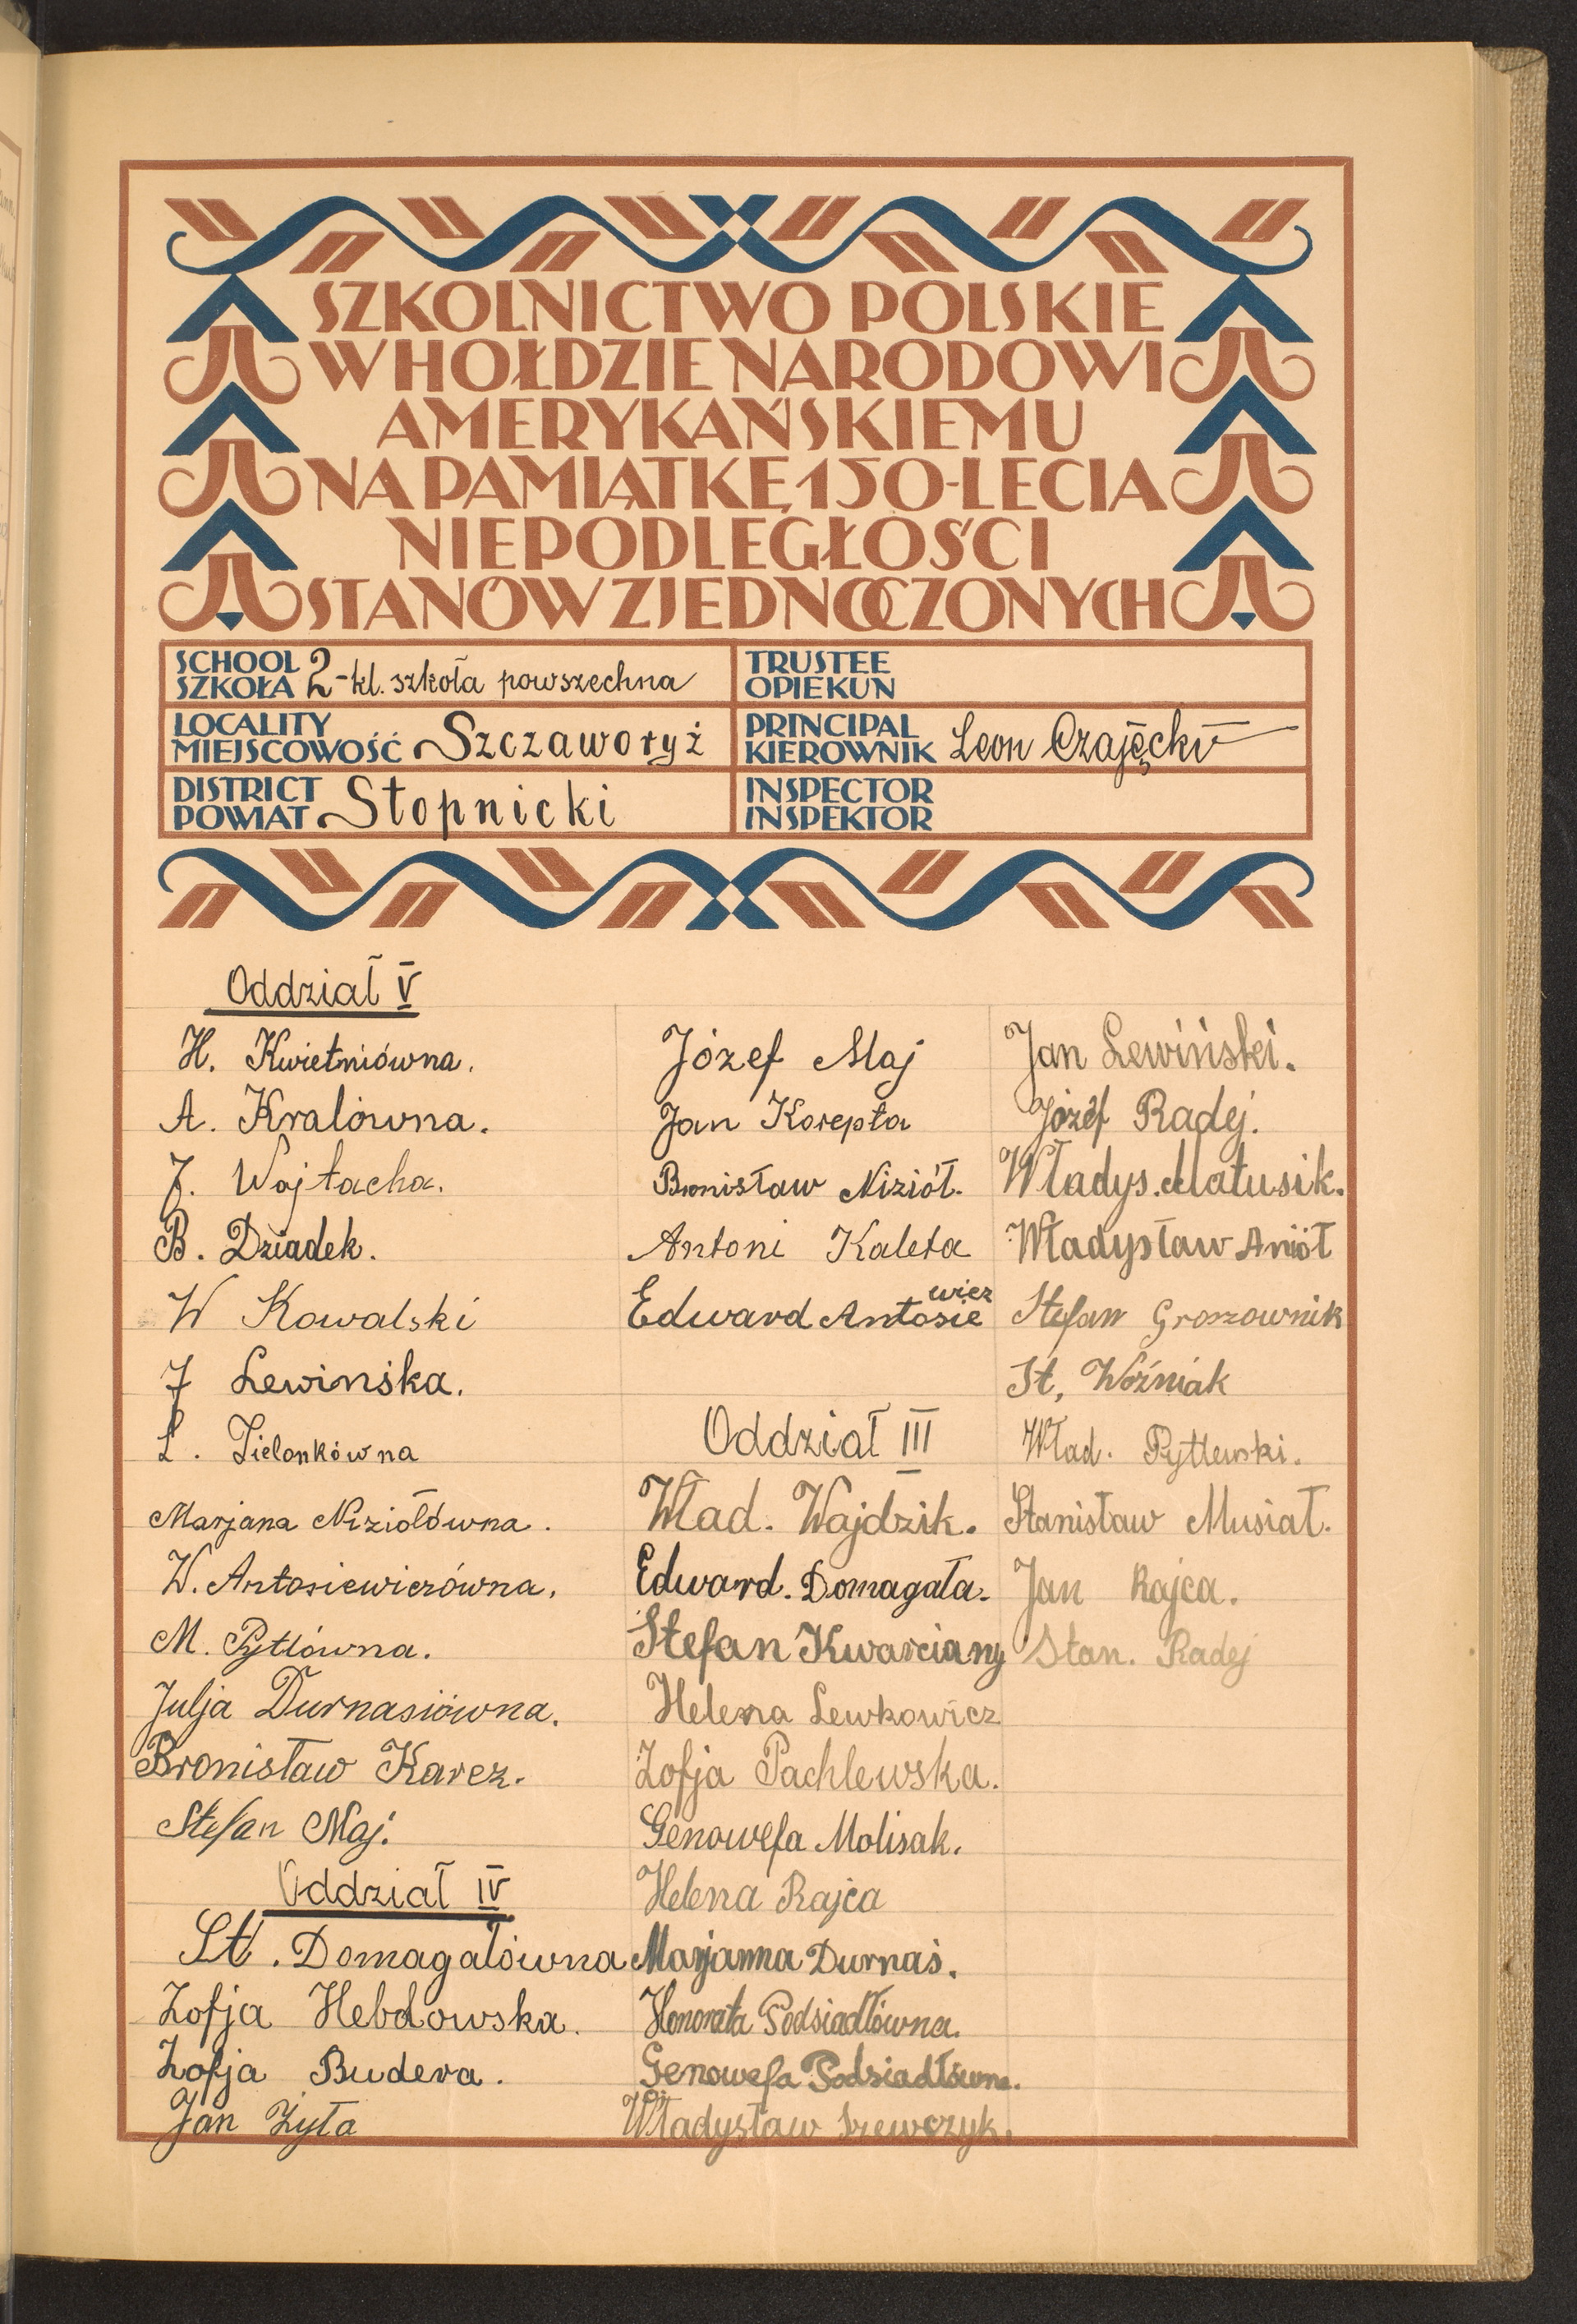 SZKOLNICTWO POLSKIE
W HOŁDZIE NARODOWI
AMERYKAŃSKIEMU
NA PAMIĄTKĘ 150-LECIA
NIEPODLEGŁOŚCI
STANÓW ZJEDNOCZONYCH
SCHOOL
SZKOŁA 2-kl. szkoła powszechna
TRUSTEE
OPIEKUN
LOCALITY
MIEJSCOWOŚĆ Szczaworyż
PRINCIPAL
KIEROWNIK Leon Czajęcki
DISTRICT
POWIAT Stopnicki
INSPECTOR
INSPEKTOR
Oddział V
H. Kwietniówna.
A. Kralówna.
J. Wojtacha.
B. Dziadek.
W Kowalski
J Lewińska.
L. Zielonkówna
Marjana Niziołówna.
W. Antosiewiczówna.
M. Pytlówna.
Julja Durnasiówna.
Bronisław Karcz.
Stefan Maj.
Oddział IV
St. Domagałówna
Zofja Hebdowska.
Zofja Budera.
Jan Żyła
Józef Maj
Jan Korepta
Bronisław Nizioł.
Antoni Kaleta
Edward Antosiewicz
Oddział III
Wład. Wajdzik.
Edward. Domagała.
Stefan Kwarciany
Helena Lewkowicz
Zofja Pachlewska.
Genowefa Molisak.
Helena Rajca
Marjanna Durnaś.
Honorata Podsiadłówna.
Genowefa Podsiadłówna.
Władysław Szewczyk.
Jan Lewiński.
Józef Radej.
Władys. Matusik.
Władysław Anioł
Stefan Groszownik
St. Woźniak
Wład. Pytlewski.
Stanisław Musiał.
Jan Rajca.
Stan. Radej